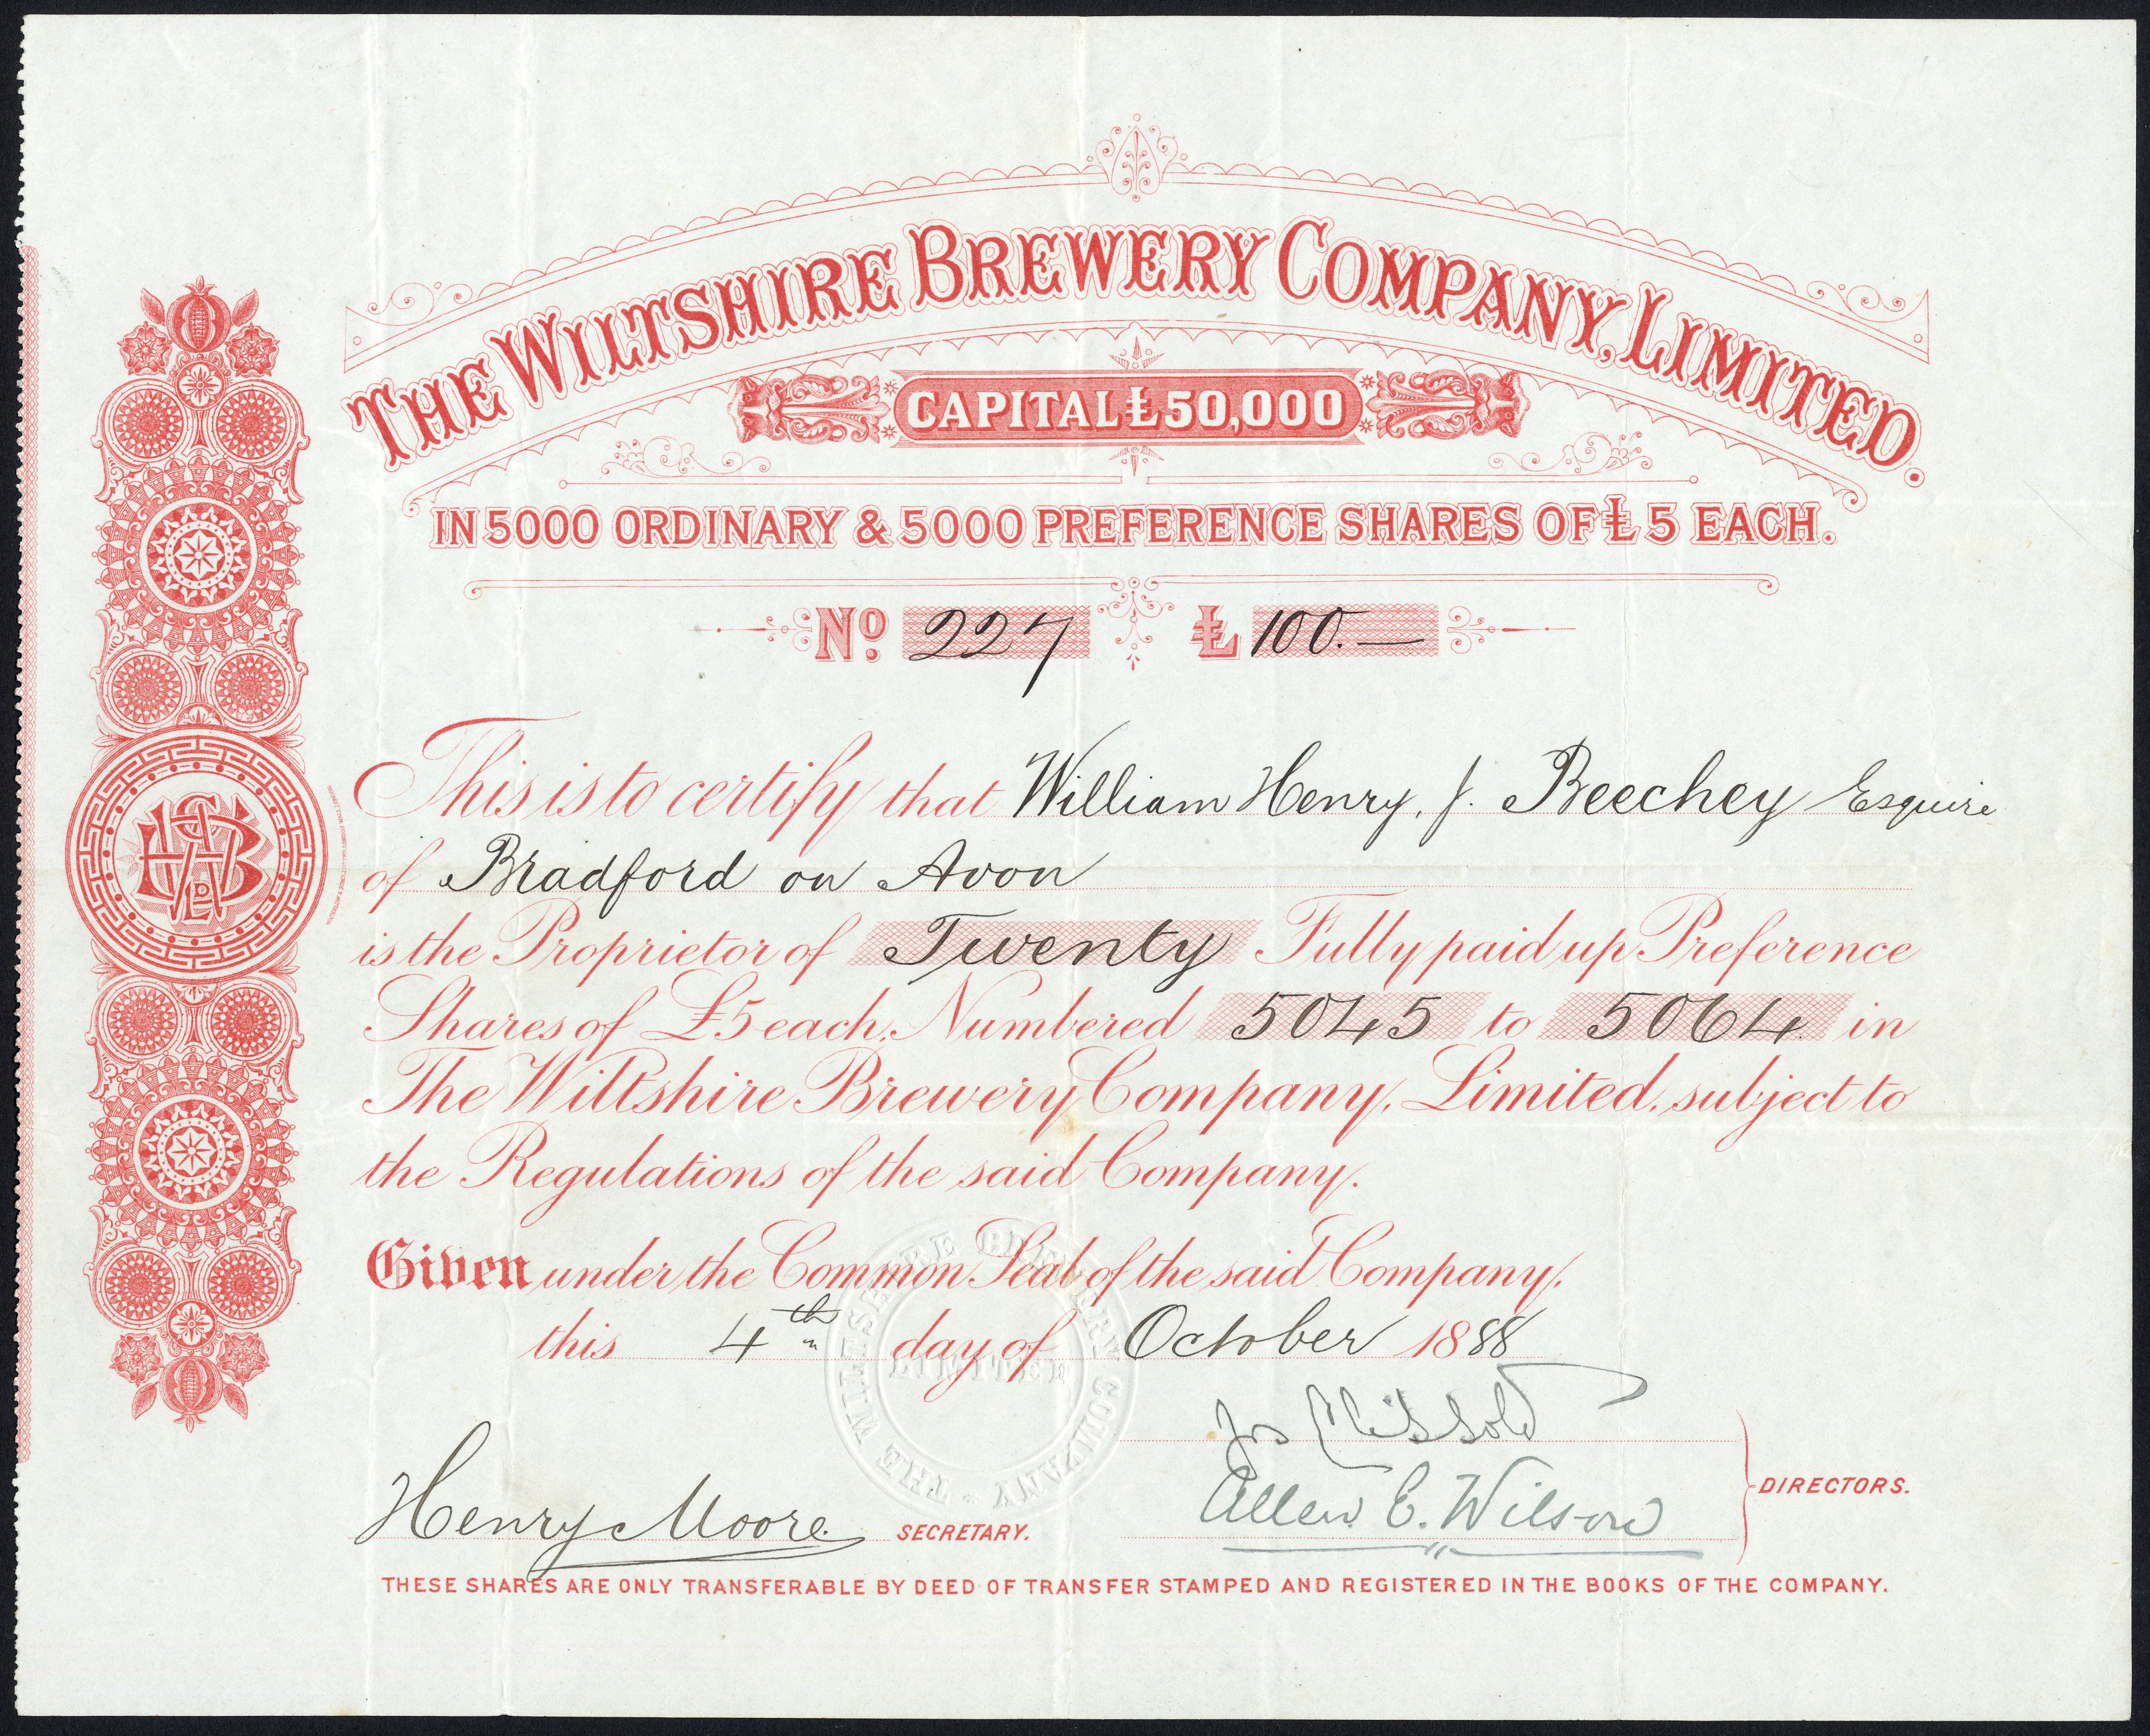 THE WILTSHIRE BREWERY COMPANY, LIMITED.
CAPITAL £50,000
IN 5000 ORDINARY & 5000 PREFERENCE SHARES OF £5 EACH.
No. 227 £ 100.—
This is to certify that William Henry. J. Beechey Esquire
of Bradford on Avon
is the Proprietor of Twenty Fully paid up Preference
Shares of £5 each, Numbered 5045 to 5064 in
The Wiltshire Brewery Company, Limited, subject to
the Regulations of the said Company.
Given under the Common Seal of the said Company,
this 4th day of October 1888
THE WILTSHIRE BREWERY COMPANY
LIMITED
Jos Clissold
Allen C. Wilson
DIRECTORS.
Henry Moore. SECRETARY.
THESE SHARES ARE ONLY TRANSFERABLE BY DEED OF TRANSFER STAMPED AND REGISTERED IN THE BOOKS OF THE COMPANY.